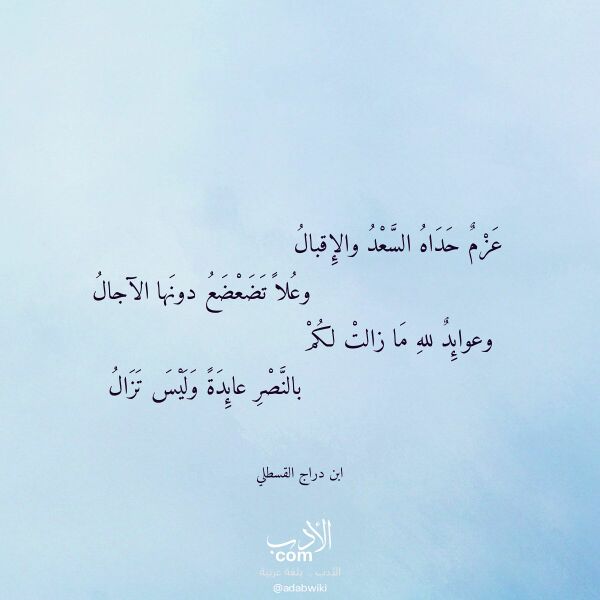 عَزْمٌ حَدَاهُ السَّعْدُ والإِقبالُ
وعُلاً تَضَعْضَعُ دونَها الآجالُ
وعوايِدٌ للهِ مَا زالتْ لكُمْ
بالنَّصْرِ عايِدَةً وَلَيْسَ تَزَالُ
ابن دراج القسطلي
الأدب
com
الأدب .. بلغة عربية
@adabwiki